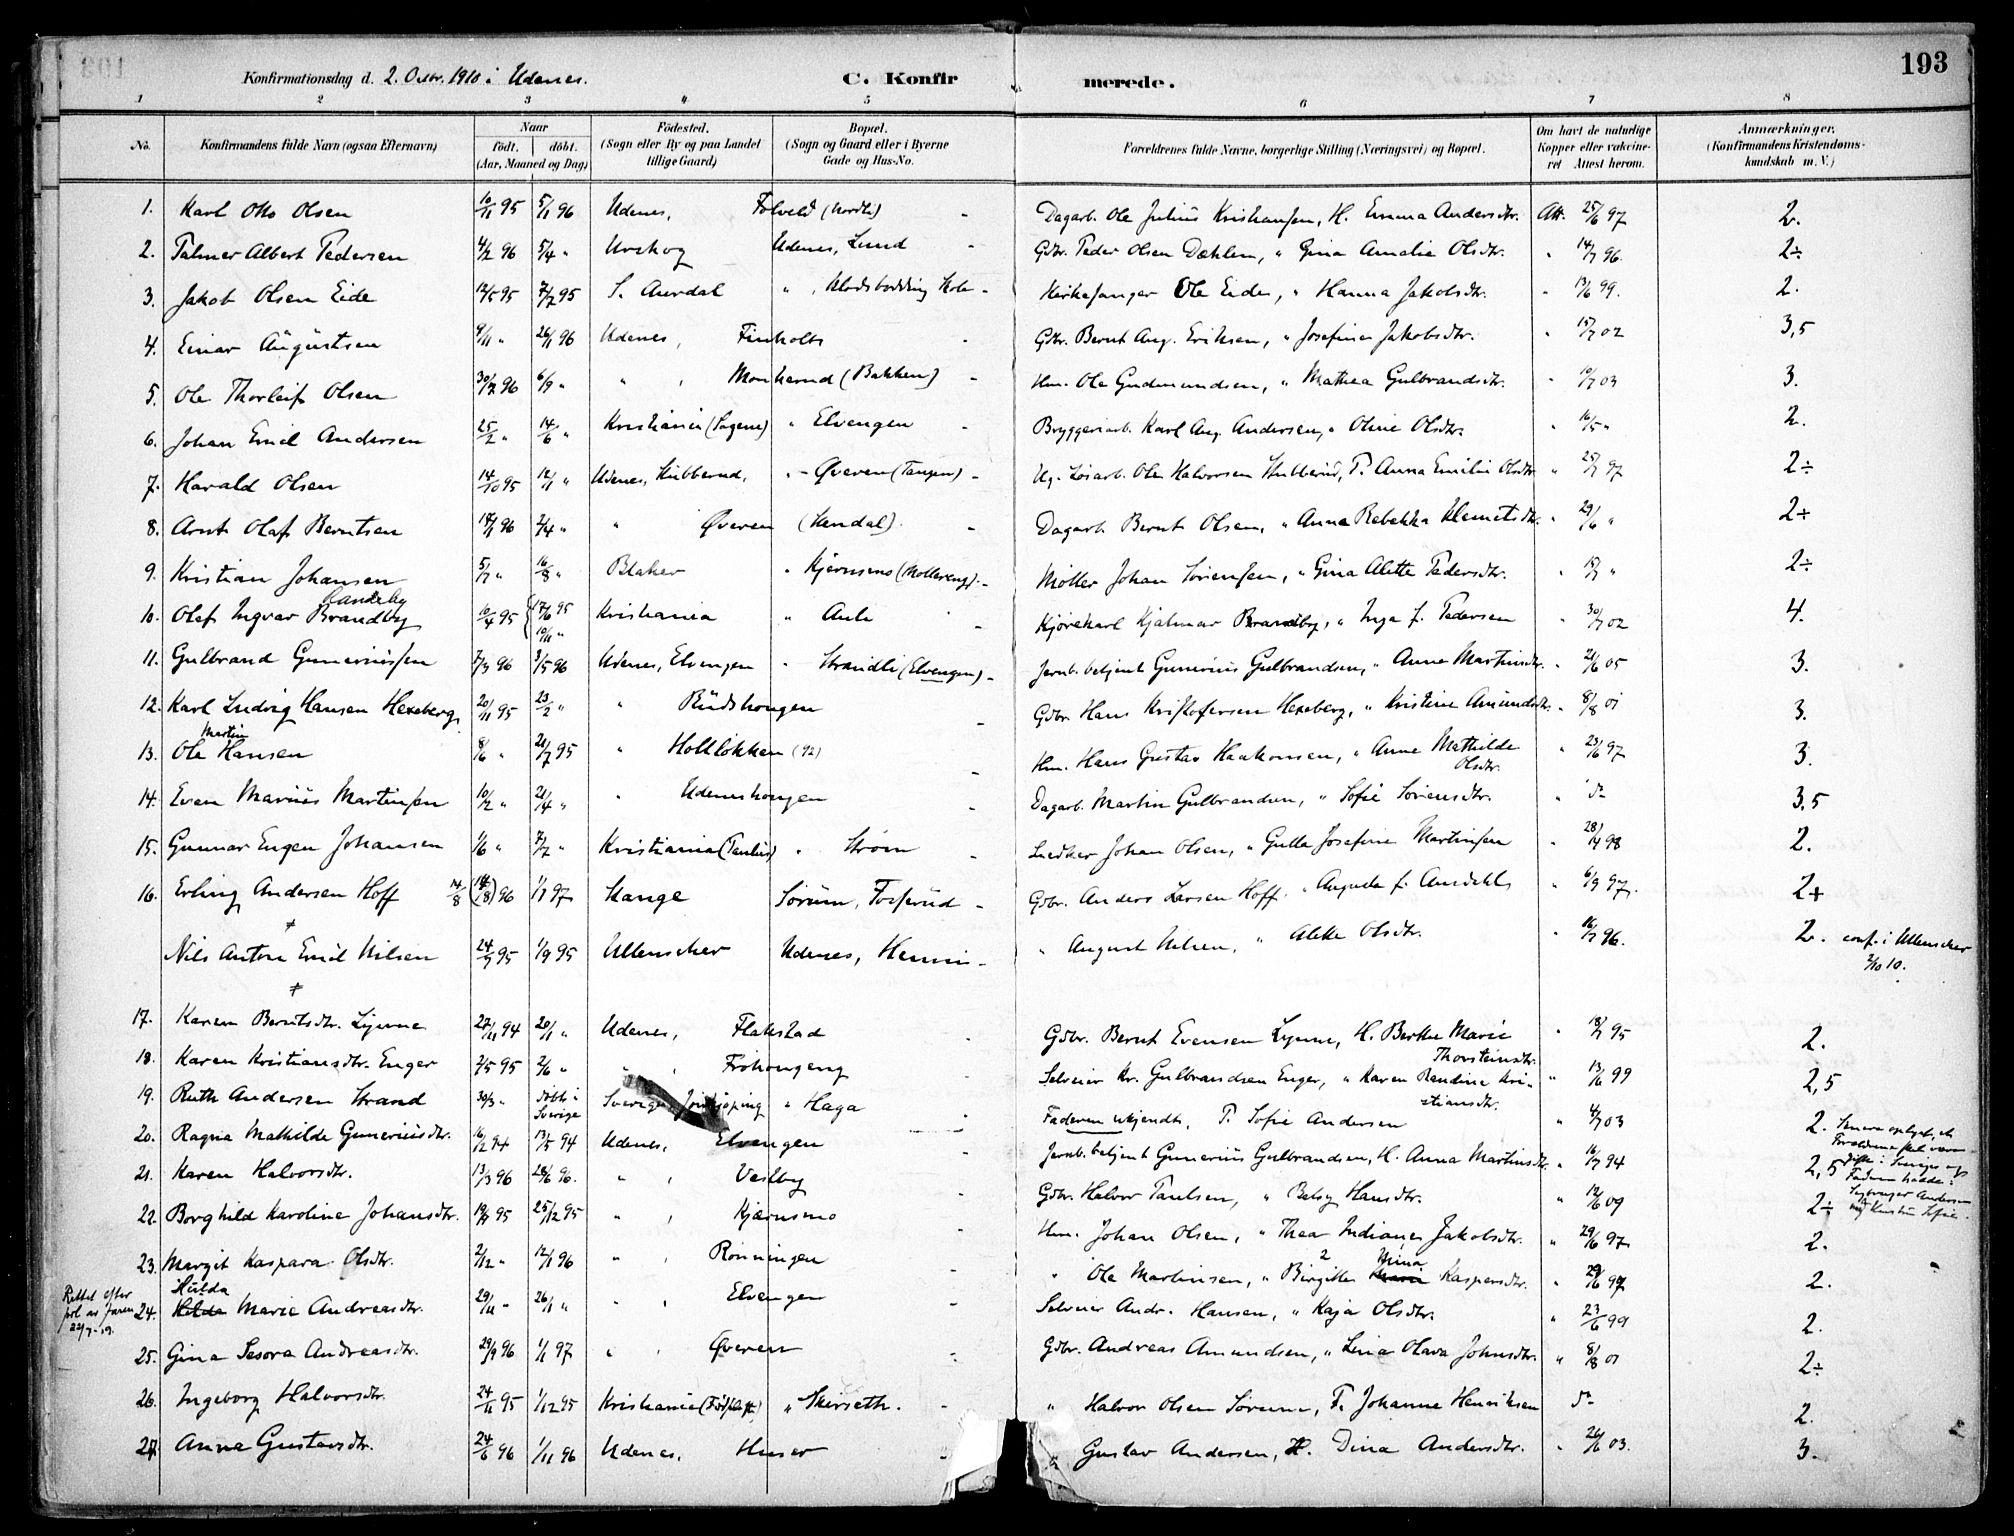 193
Konfirmationsdag d. 2. Octbr. 1910 i Udenes.
C. Konfirmerede.
1 2 3 4 5 6 7 8
No.
Konfirmandens fulde Navn (ogsaa Efternavn)
Naar
født. døbt.
(Aar, Maaned og Dag)
Fødested.
(Sogn eller By og paa Landet
tillige Gaard)
Bopæl.
(Sogn og Gaard eller i Byerne
Gade og Hus-No.
Forældrenes fulde Navne, borgerlige Stilling (Næringsvei) og Bopæl.
Om havt de naturlige
Kopper eller vakcine-
ret Attest herom.
Anmærkninger.
(Konfirmandens Kristendoms-
kundskab m. V.)
1. Karl Otto Olsen 10/11 95 5/1 96 Udenes, Folveld (Nordli) Dagarb. Ole Julius Kristiansen, H. Emma Andersdtr. Att. 25/6 97 2.
2. Palmer Albert Pedersen 4/2 96 5/4 " Urskog Udenes, Lund Gdbr. Peder Olsen Dæhlen, " Gina Amalie Olsdtr. " 14/7 96. 2÷
3. Jakob Olsen Eide 12/5 95 7/7 95 S. Aurdal " Kirkesanger Ole Eide, " Hanna Jakobsdtr. " 13/6 99. 2.
4. Einar Augustsen 9/11 " 26/1 96 Udenes, Finholt Gdbr. Bernt Aug. Eriksen, " Josefine Jakobsdtr. " 15/7 02 3,5
5. Ole Thorleif Olsen 30/7 96 6/9 " " , Monkerud (Bakken) Hm. Ole Gudmundsen, " Mathea Gulbrandsdtr. " 10/7 03 3.
6. Johan Emil Andersen 25/2 " 14/6 " Kristiania (Sagene) " Elvengen Bryggeriarb. Karl Aug. Andersen, " Oline Olsdtr. " 16/5 " 2.
7. Harald Olsen 14/10 95 12/1 " Udenes, Hubberud, " Øveren (Tangen) Ug. Løsarb. Ole Halvorsen Hubberud, P. Anna Emilie Olsdtr. " 25/7 97 2÷
8. Arnt Olaf Berntsen 18/1 96 2/4 " " Øveren (Stendal). Dagarb. Bernt Olsen, " Anna Rebekka Klemetsdtr. " 29/6 " 2+
9. Kristian Johansen 5/7 " 16/8 " Blaker " Kjernsmo (Mollereng) Møller Johan Sørensen, " Gina Alette Pedersdtr. " 15/7 " 2÷
10. Olaf Ingvar Brandby 10/4 95 Kristiania " Auli Kjørekarl Hjalmar Brandby, " Inga f. Pedersen " 30/7 02 4.
11. Gulbrand Gunerius­sen 7/3 96 3/5 96 Udenes, Elvengen " Strandli (Elvengen) Jernb. betjent Gunerius Gulbrandsen, " Anna Martinsdtr. " 21/6 05 3.
12. Karl Ludvig Hansen Hexeberg 20/11 95 23/2 " " Rudshougen Gdbr. Hans Kristofersen Hexeberg, " Kristine Amundsdtr. " 8/8 01 3.
Martin
13. Ole Hansen 8/6 " 21/7 95 " Holtløkken (92) Hm. Hans Gustav Haakonsen, " Anne Mathilde Olsdtr. " 23/6 97 3.
14. Even Marius Martinsen 10/2 " 21/4 " " Udeneshougen Dagarb. Martin Gulbrandsen, " Sofie Sørensdtr. " do 3,5
15. Gunnar Eugen Johansen 1/6 " 7/7 " Kristiania (Paulus) " Strøm Snedker Johan Olsen, " Gulla Josefine Martinsen " 28/4 98 2.
16. Erling Andersen Hoff 14/8 (14/8) 96 1/1 97 Stange Sørum, Fosserud Gdbr. Anders Larsen Hoff, " Augusta f. " 6/9 97. 2+
Nils Anton Emil Nilsen 24/7 95 1/9 95 Ullensaker Udenes, Henni " August Nilsen, " Alette Olsdtr. " 16/7 96. 2. conf. i Ullensaker 2/10 10.
17. Karen Berntsdtr. Lynne 27/11 94 20/1 " Udenes, Flakstad Gdbr. Bernt Evensen Lynne, H. Berthe Marie Thorsteinsdtr. " 18/7 95 2.
18. Karen Kristiansdtr. Enger 2/5 95 2/6 " " , Frohougeng Selveier Kr. Gulbrandsen Enger, " Karen Randine Kristiansdtr. " 13/6 99 2,5
19. Ruth Andersen Strand 30/3 " døbt i Sverige Sverige, Jønkjøping " Haga Faderen ukjendt, P. Sofie Andersen " 4/7 03 2.
20. Ragna Mathilde Guneriusdtr. 16/2 94 13/5 94 Udenes, Elvengen Jernb. betjent Gunerius Gulbrandsen, H. Anna Martinsdtr. " 16/7 94 2,5
21. Karen Halvorsdtr. 13/3 96 28/6 96. " , Vestby Gdbr. Halvor Paulsen, " Betsy Hansdtr. " 12/6 09 2÷
22. Borghild Karoline Johansdtr. 19/9 95 25/12 95 " , Kjærnsmo Hm. Johan Olsen, " Thea Indianes Jakobsdtr. " 29/6 97 2.
23. Margit Kaspara Olsdtr. 2/12 " 12/1 96 " , Rønningen " Ole Martinsen, " Birgitte Mina Kaspersdtr. " 29/6 97 2.
Rettet efter
Hulda
24. Hilda Marie Andreasdtr. 29/11 " 26/1 " " , Elvengen Selveier Andr. Hansen, " Kaja Olsdtr. " 23/6 99 2.
25. Gina Sesora Andreasdtr. 29/9 96 1/1 97 " , Øveren Gdbr. Andreas Amundsen, " Lina Olava Johnsdtr. " 8/8 01 2÷
26. Ingeborg Halvorsdtr. 24/11 95 1/12 95 Kristiania " Skirseth. " Halvor Olsen Sørum, F. Johanne Henriksen do 2.
27. Anna Gustavsdtr. 24/6 96 1/11 96 Udenes, Huser " Gustav Andersen, H. Dina Andersdtr. " 26/6 03. 3.